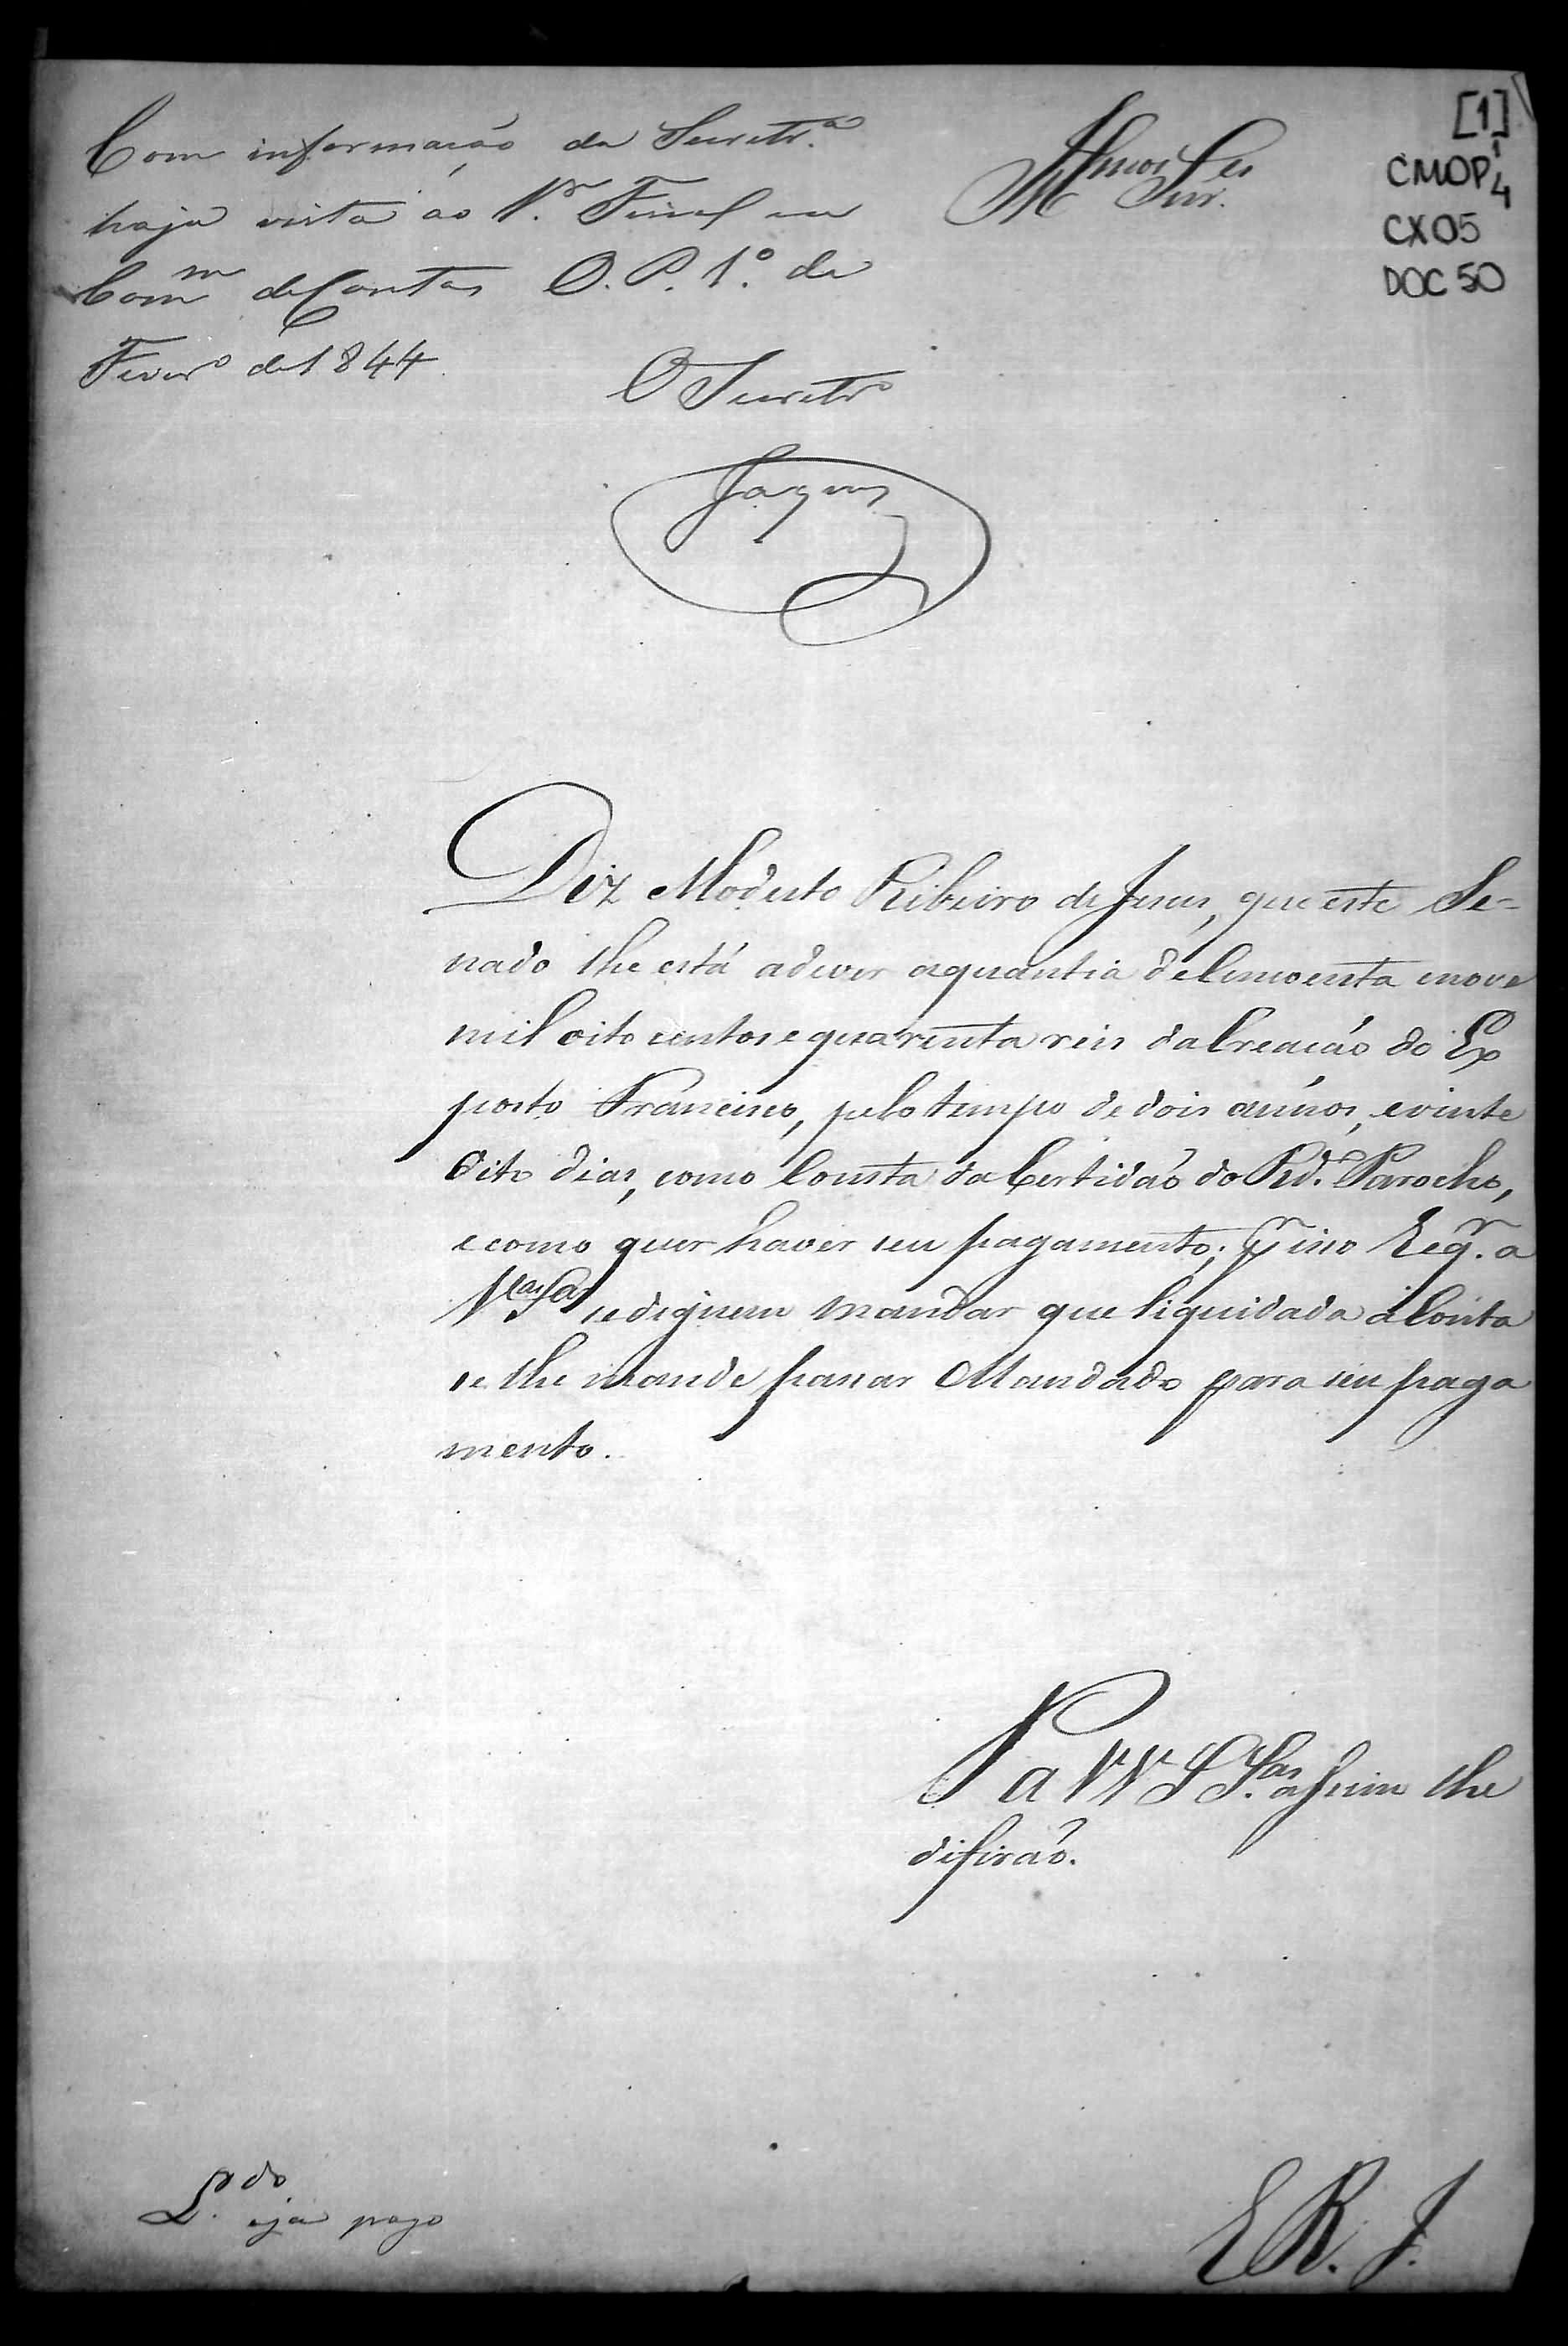 [1]
CMOP 1
4
CX05
DOC 50
Com informação da Secretr.ª
haja vista ao Vr. Fiscal em
Comm de Contas O. P. 1.º de
Feverº de 1844.
O Secretrº
Illmos Snr.es
Diz Modesto Ribeiro de Jesus, que este Se-
nado lhe está a dever aquantia de Cincoenta enove
mil oito centos e quarenta reis da Creacáo do Ex
posto Francisco, pelo tempo de dois annos, evinte
Oito dias, como Consta da Certidaõ do Rd.º Parocho,
e como quer haver seu pagamento; Pr isso Reqr. a
V.as S.as se dignem mandar que liquidada a Conta
se lhe mande passar Mandado para seu paga
mento.
P a VV. S S.as assim lhe
difiraõ.
L.do
seja pago
E R. J.